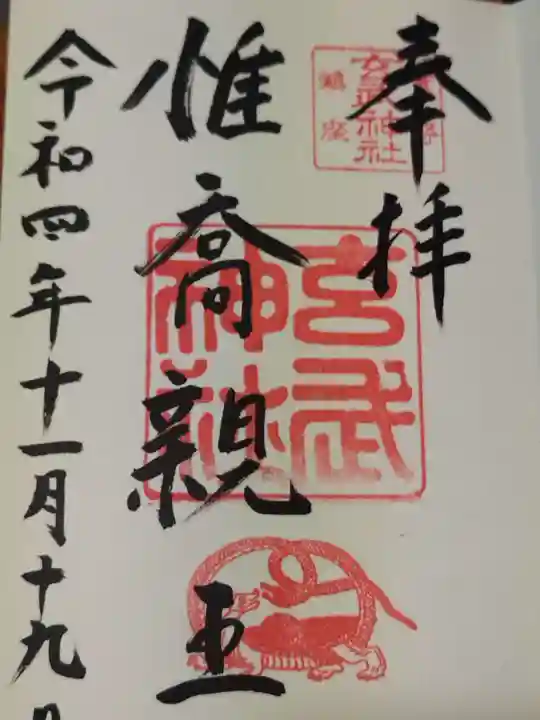 奉拝
玄武神社
鎮座
玄武神社
惟喬親王
令和四年十一月十九日